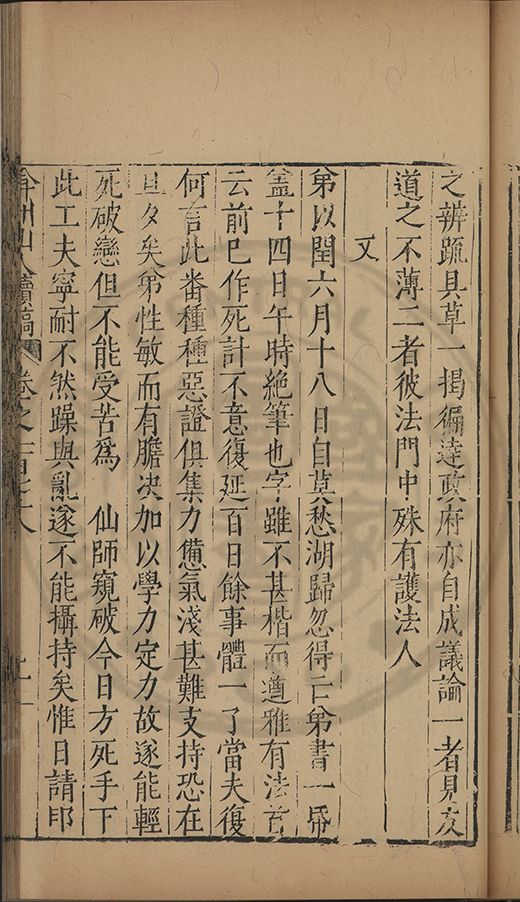 之辨疏具草一揭徧達政府亦自成議論一者見友
道之不薄二者彼法門中殊有護法人
又
弟以閏六月十八日自莫愁湖歸忽得亡弟書一帋
蓋十四日午時絶筆也字雖不甚楷而遒雅有法首
云前已作死計不意復延百日餘事體一了當夫復
何言此番種種惡證俱集力憊氣淺甚難支持恐在
旦夕矣弟性敏而有膽决加以學力定力故遂能輕
死破戀但不能受苦爲 仙師窺破今日方死手下
此工夫寧耐不然躁與亂遂不能攝持矣惟日請印
弇州山人續稿 卷之一百 八